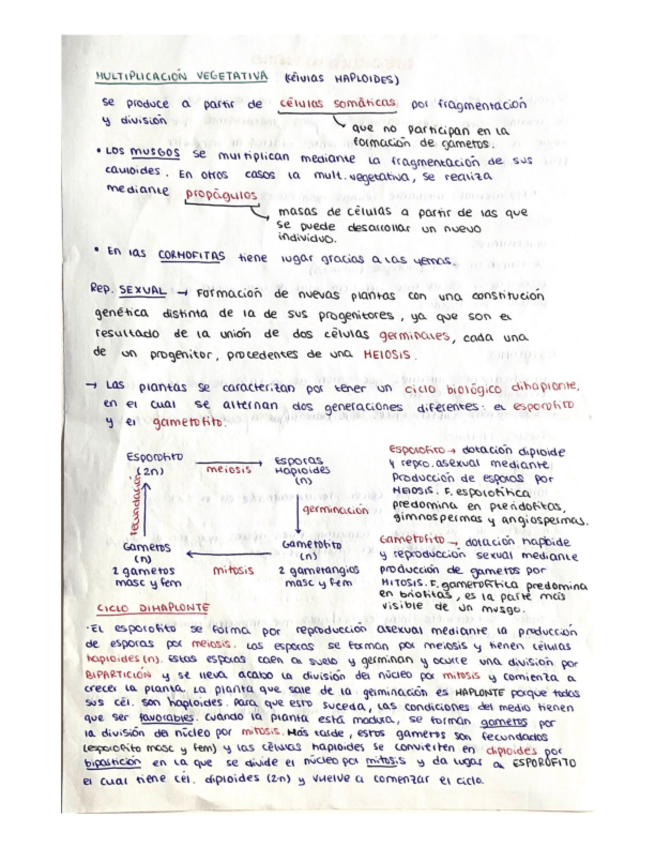 MULTIPLICACIÓN VEGETATIVA (células HAPLOIDES)
se produce a partir de células somáticas por fragmentación
y división
que no participan en la
formación de gametos.
• LOS MUSGOS se multiplican mediante la fragmentación de sus
cauloides. En otros casos la mult. vegetativa, se realiza
mediante propágulos
masas de células a partir de las que
se puede desarrollar un nuevo
individuo.
• En las CORMOFITAS tiene lugar gracias a las yemas.
Rep. SEXUAL → Formación de nuevas plantas con una constitución
genética distinta de la de sus progenitores, ya que son el
resultado de la unión de dos células germinales, cada una
de un progenitor, procedentes de una MEIOSIS.
→ Las plantas se caracterizan por tener un ciclo biológico dihaplonte,
en el cual se alternan dos generaciones diferentes: el esporofito
y el gametofito.
Esporofito
(2n)
meiosis
esporas
Haploides
(n)
germinación
Gametofito
(n)
2 gametangios
masc y fem
mitosis
Gametos
(n)
2 gametos
masc y fem
fecundación
esporofito → dotación diploide
y repro. asexual mediante
producción de esporas por
MEIOSIS. F. esporofítica
predomina en pteridofitas,
gimnospermas y angiospermas.
Gametofito → dotación haploide
y reproducción sexual mediante
producción de gametos por
MITOSIS. F. gametofítica predomina
en briofitas, es la parte más
visible de un musgo.
CICLO DIHAPLONTE
·El esporofito se forma por reproducción asexual mediante la producción
de esporas por meiosis. Las esporas se forman por meiosis y tienen células
haploides (n). Estas esporas caen al suelo y germinan y ocurre una división por
BIPARTICIÓN y se lleva acabo la división del núcleo por mitosis y comienza a
crecer la planta. La planta que sale de la germinación es HAPLONTE porque todas
sus cél. son haploides. Para que esto suceda, las condiciones del medio tienen
que ser favorables. Cuando la planta está madura, se forman gametos por
la división del núcleo por mitosis. Más tarde, estos gametos son fecundados
(esporofito masc y fem) y las células haploides se convierten en diploides por
bipartición en la que se divide el núcleo por mitosis y da lugar al ESPOROFITO
el cual tiene cél. diploides (2n) y vuelve a comenzar el ciclo.